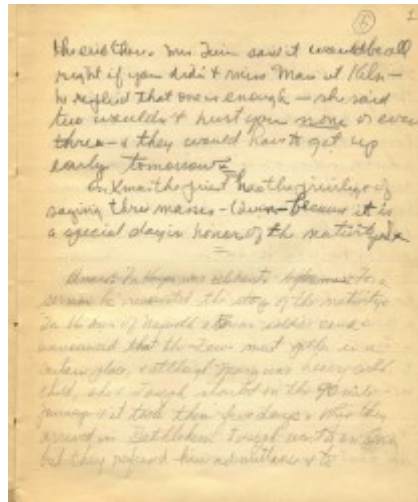 5
Mrs. Quin said it would be all
right if you didn't miss Mass at Keln —
he replied that one is enough — she said
two wouldn't hurt you none or even
three — & they would have to get up
early tomorrow.
On Xmas the priest has the privilege of
saying three masses — because it is
a special day in honor of the nativity
was celebrant
sermon he recounted the story of the nativity
In the town of Nazareth a Roman soldier came &
announced that the Jews must go in a
certain place, & although Mary was heavy with
child, she & Joseph started on the 90 mile
journey & it took them five days. When they
arrived in Bethlehem Joseph went to an Inn
but they refused him admittance & to